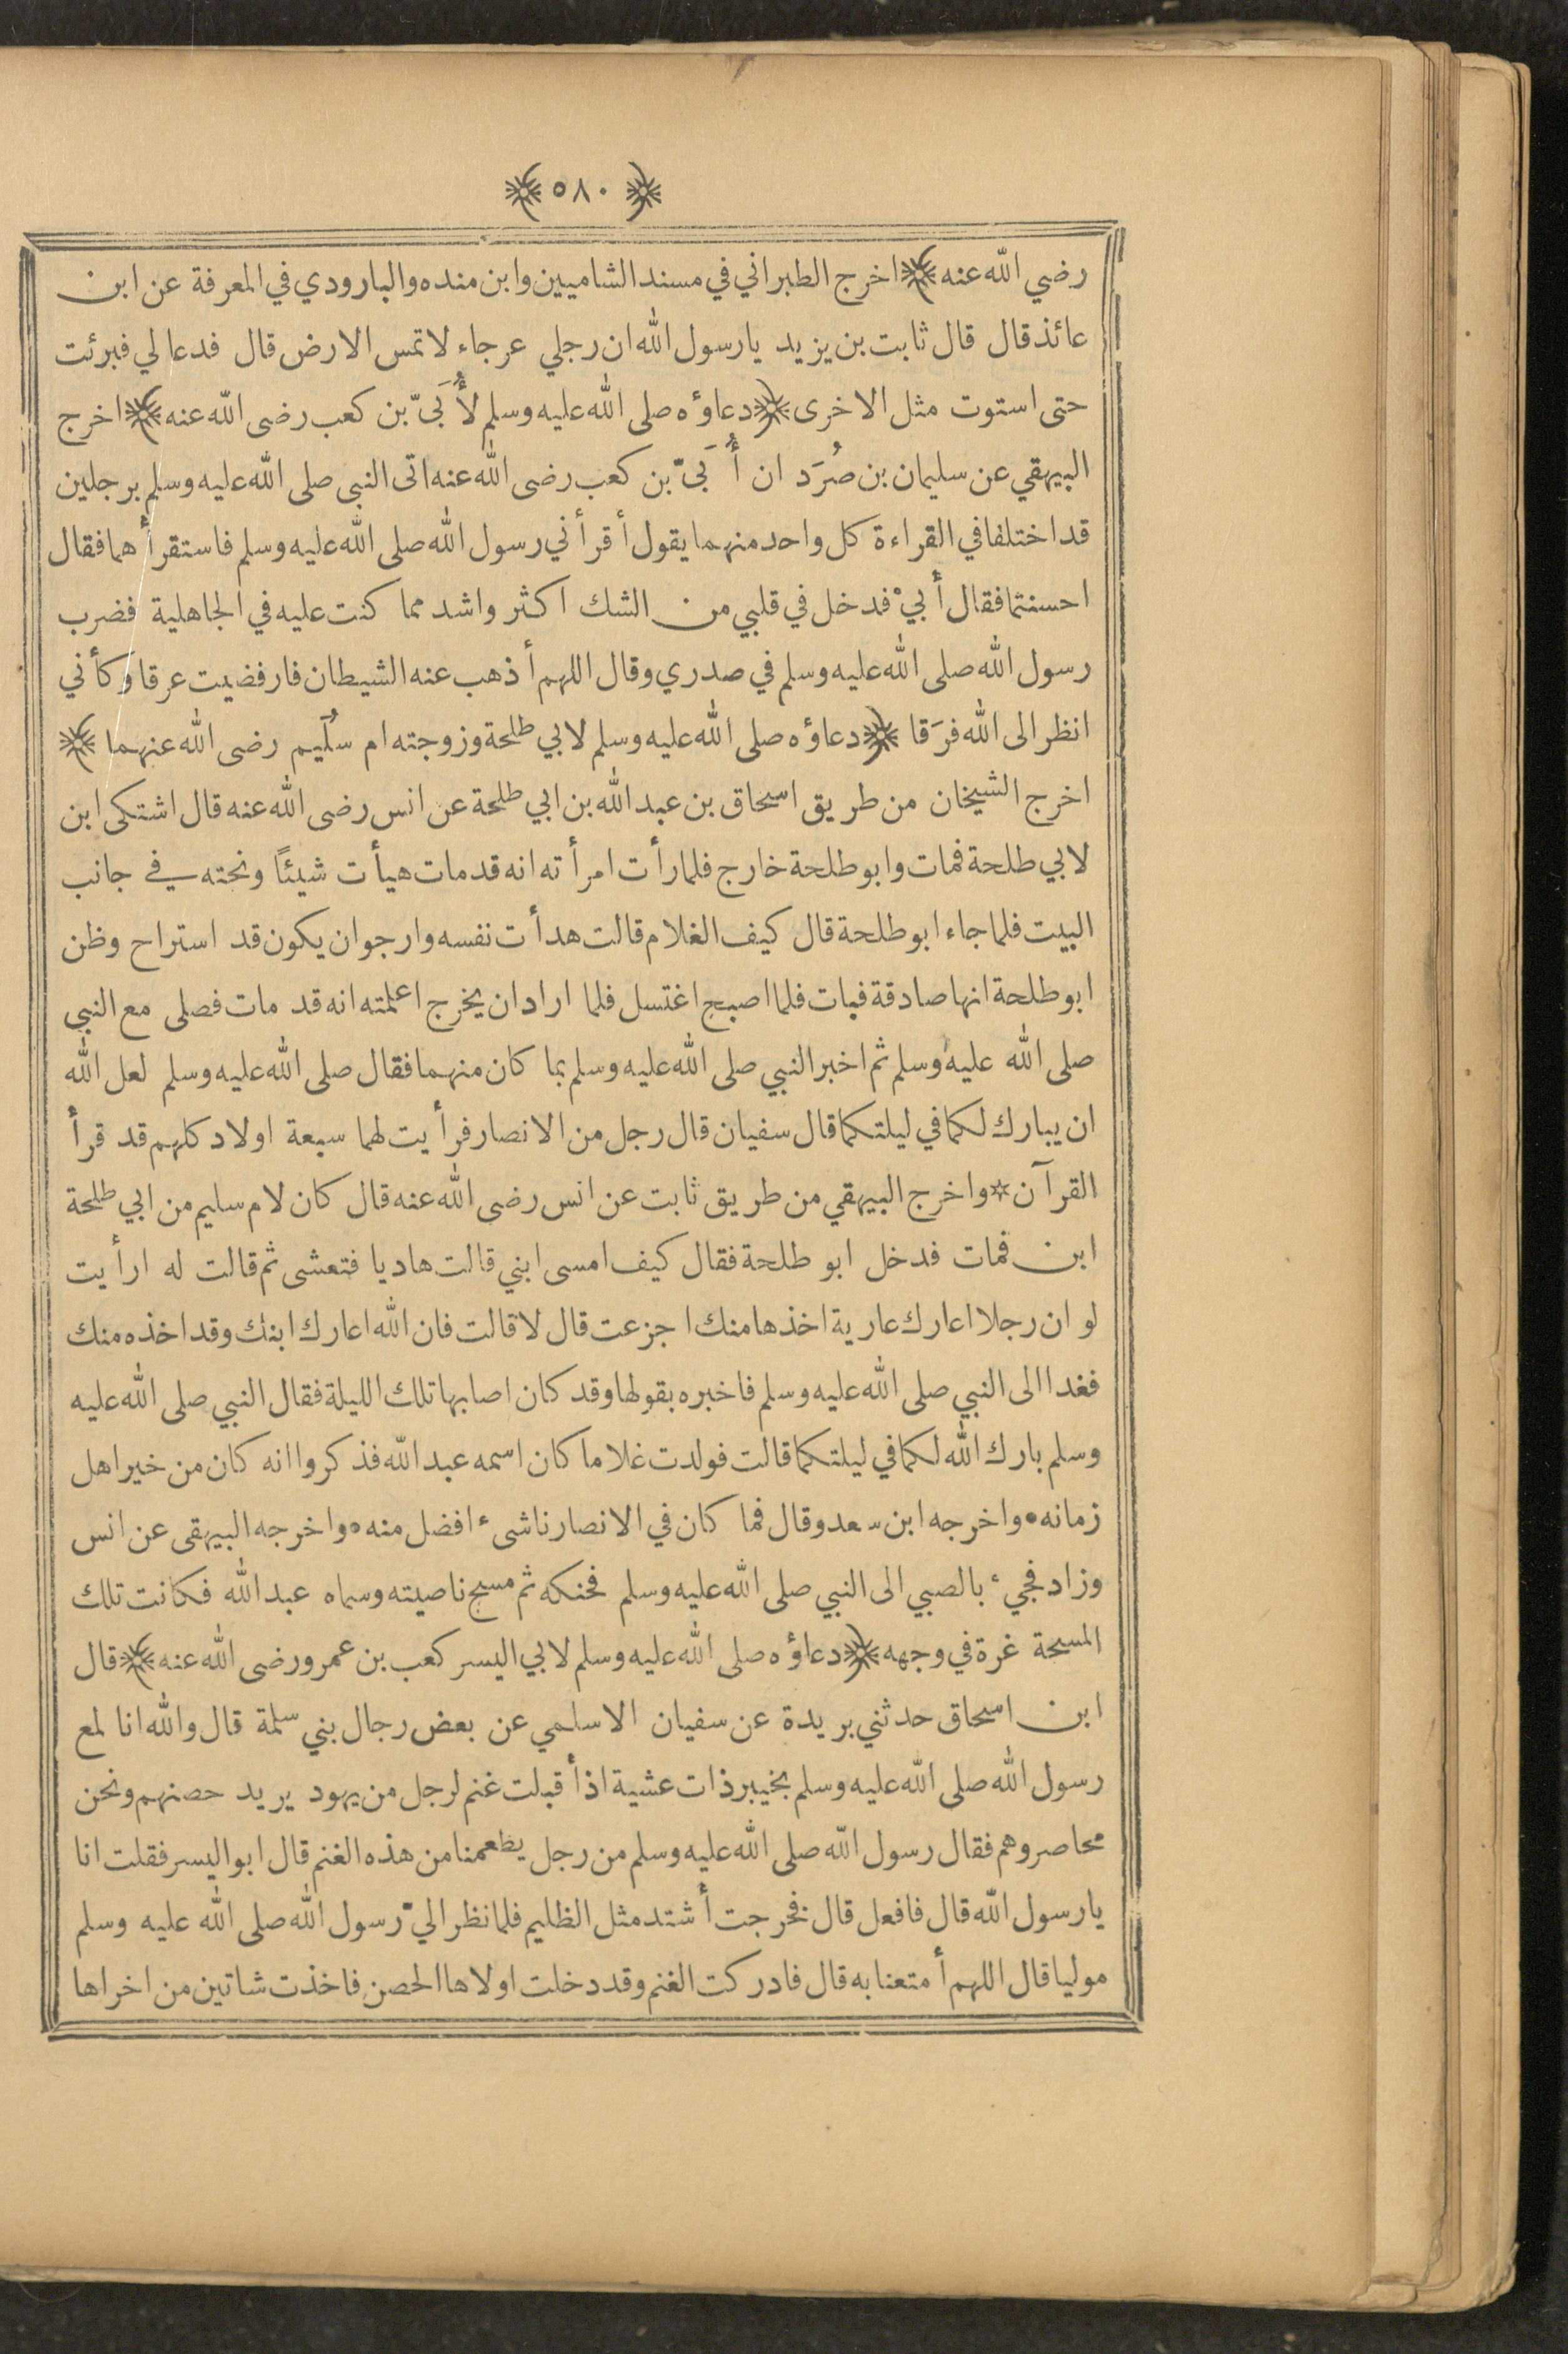 ﴿ ٥٨٠ ﴾
رضي الله عنه ﴾ اخرج الطبراني في مسند الشاميين وابن منده والبارودي في المعرفة عن ابن
عائذ قال قال ثابت بن يزيد يارسول الله ان رجلي عرجاء لا تمس الارض قال فدعا لي فبرئت
حتى استوت مثل الاخرى ﴿ دعاؤه صلى الله عليه وسلم لأُبَيّ بن كعب رضى الله عنه ﴾ اخرج
البيهقي عن سليمان بن صُرَد ان أُبَيّ بن كعب رضى الله عنه اتى النبي صلى الله عليه وسلم برجلين
قد اختلفا في القراءة كل واحد منهما يقول أقرأني رسول الله صلى الله عليه وسلم فاستقرأهما فقال
احسنتما فقال أبيّ فدخل في قلبي من الشك اكثر واشد مما كنت عليه في الجاهلية فضرب
رسول الله صلى الله عليه وسلم في صدري وقال اللهم أذهب عنه الشيطان فارفضيت عرقا وكأني
انظر الى الله فرَقا ﴿ دعاؤه صلى الله عليه وسلم لابي طلحة وزوجته ام سُلَيم رضى الله عنهما ﴾
اخرج الشيخان من طريق اسحاق بن عبد الله بن ابي طلحة عن انس رضى الله عنه قال اشتكى ابن
لابي طلحة فمات وابو طلحة خارج فلما رأت امرأته انه قد مات هيأت شيئًا ونحته في جانب
البيت فلما جاء ابو طلحة قال كيف الغلام قالت هدأت نفسه وارجو ان يكون قد استراح وظن
ابو طلحة انها صادقة فبات فلما اصبح اغتسل فلما اراد ان يخرج اعلمته انه قد مات فصلى مع النبي
صلى الله عليه وسلم ثم اخبر النبي صلى الله عليه وسلم بما كان منهما فقال صلى الله عليه وسلم لعل الله
ان يبارك لكما في ليلتكما قال سفيان قال رجل من الانصار فرأيت لهما سبعة اولاد كلهم قد قرأ
القرآن * واخرج البيهقي من طريق ثابت عن انس رضى الله عنه قال كان لام سليم من ابي طلحة
ابن فمات فدخل ابو طلحة فقال كيف امسى ابني قالت هاديا فتعشى ثم قالت له ارأيت
لو ان رجلا اعارك عارية اخذها منك اجزعت قال لا قالت فان الله اعارك ابنك وقد اخذه منك
فغدا الى النبي صلى الله عليه وسلم فاخبره بقولها وقد كان اصابها تلك الليلة فقال النبي صلى الله عليه
وسلم بارك الله لكما في ليلتكما قالت فولدت غلاما كان اسمه عبد الله فذكروا انه كان من خير اهل
زمانه • واخرجه ابن سعد وقال فما كان في الانصار ناشىء افضل منه • واخرجه البيهقى عن انس
وزاد فجيء بالصبي الى النبي صلى الله عليه وسلم فحنكه ثم مسح ناصيته وسماه عبد الله فكانت تلك
المسحة غرة في وجهه ﴿ دعاؤه صلى الله عليه وسلم لابي اليسر كعب بن عمرو رضى الله عنه ﴾ قال
ابن اسحاق حدثني بريدة عن سفيان الاسلمي عن بعض رجال بني سلمة قال والله انا لمع
رسول الله صلى الله عليه وسلم بخيبر ذات عشية اذ أقبلت غنم لرجل من يهود يريد حصنهم ونحن
محاصروهم فقال رسول الله صلى الله عليه وسلم من رجل يطعمنا من هذه الغنم قال ابو اليسر فقلت انا
يارسول الله قال فافعل قال فخرجت أشتد مثل الظليم فلما نظر اليّ رسول الله صلى الله عليه وسلم
موليا قال اللهم أمتعنا به قال فادركت الغنم وقد دخلت اولاها الحصن فاخذت شاتين من اخراها